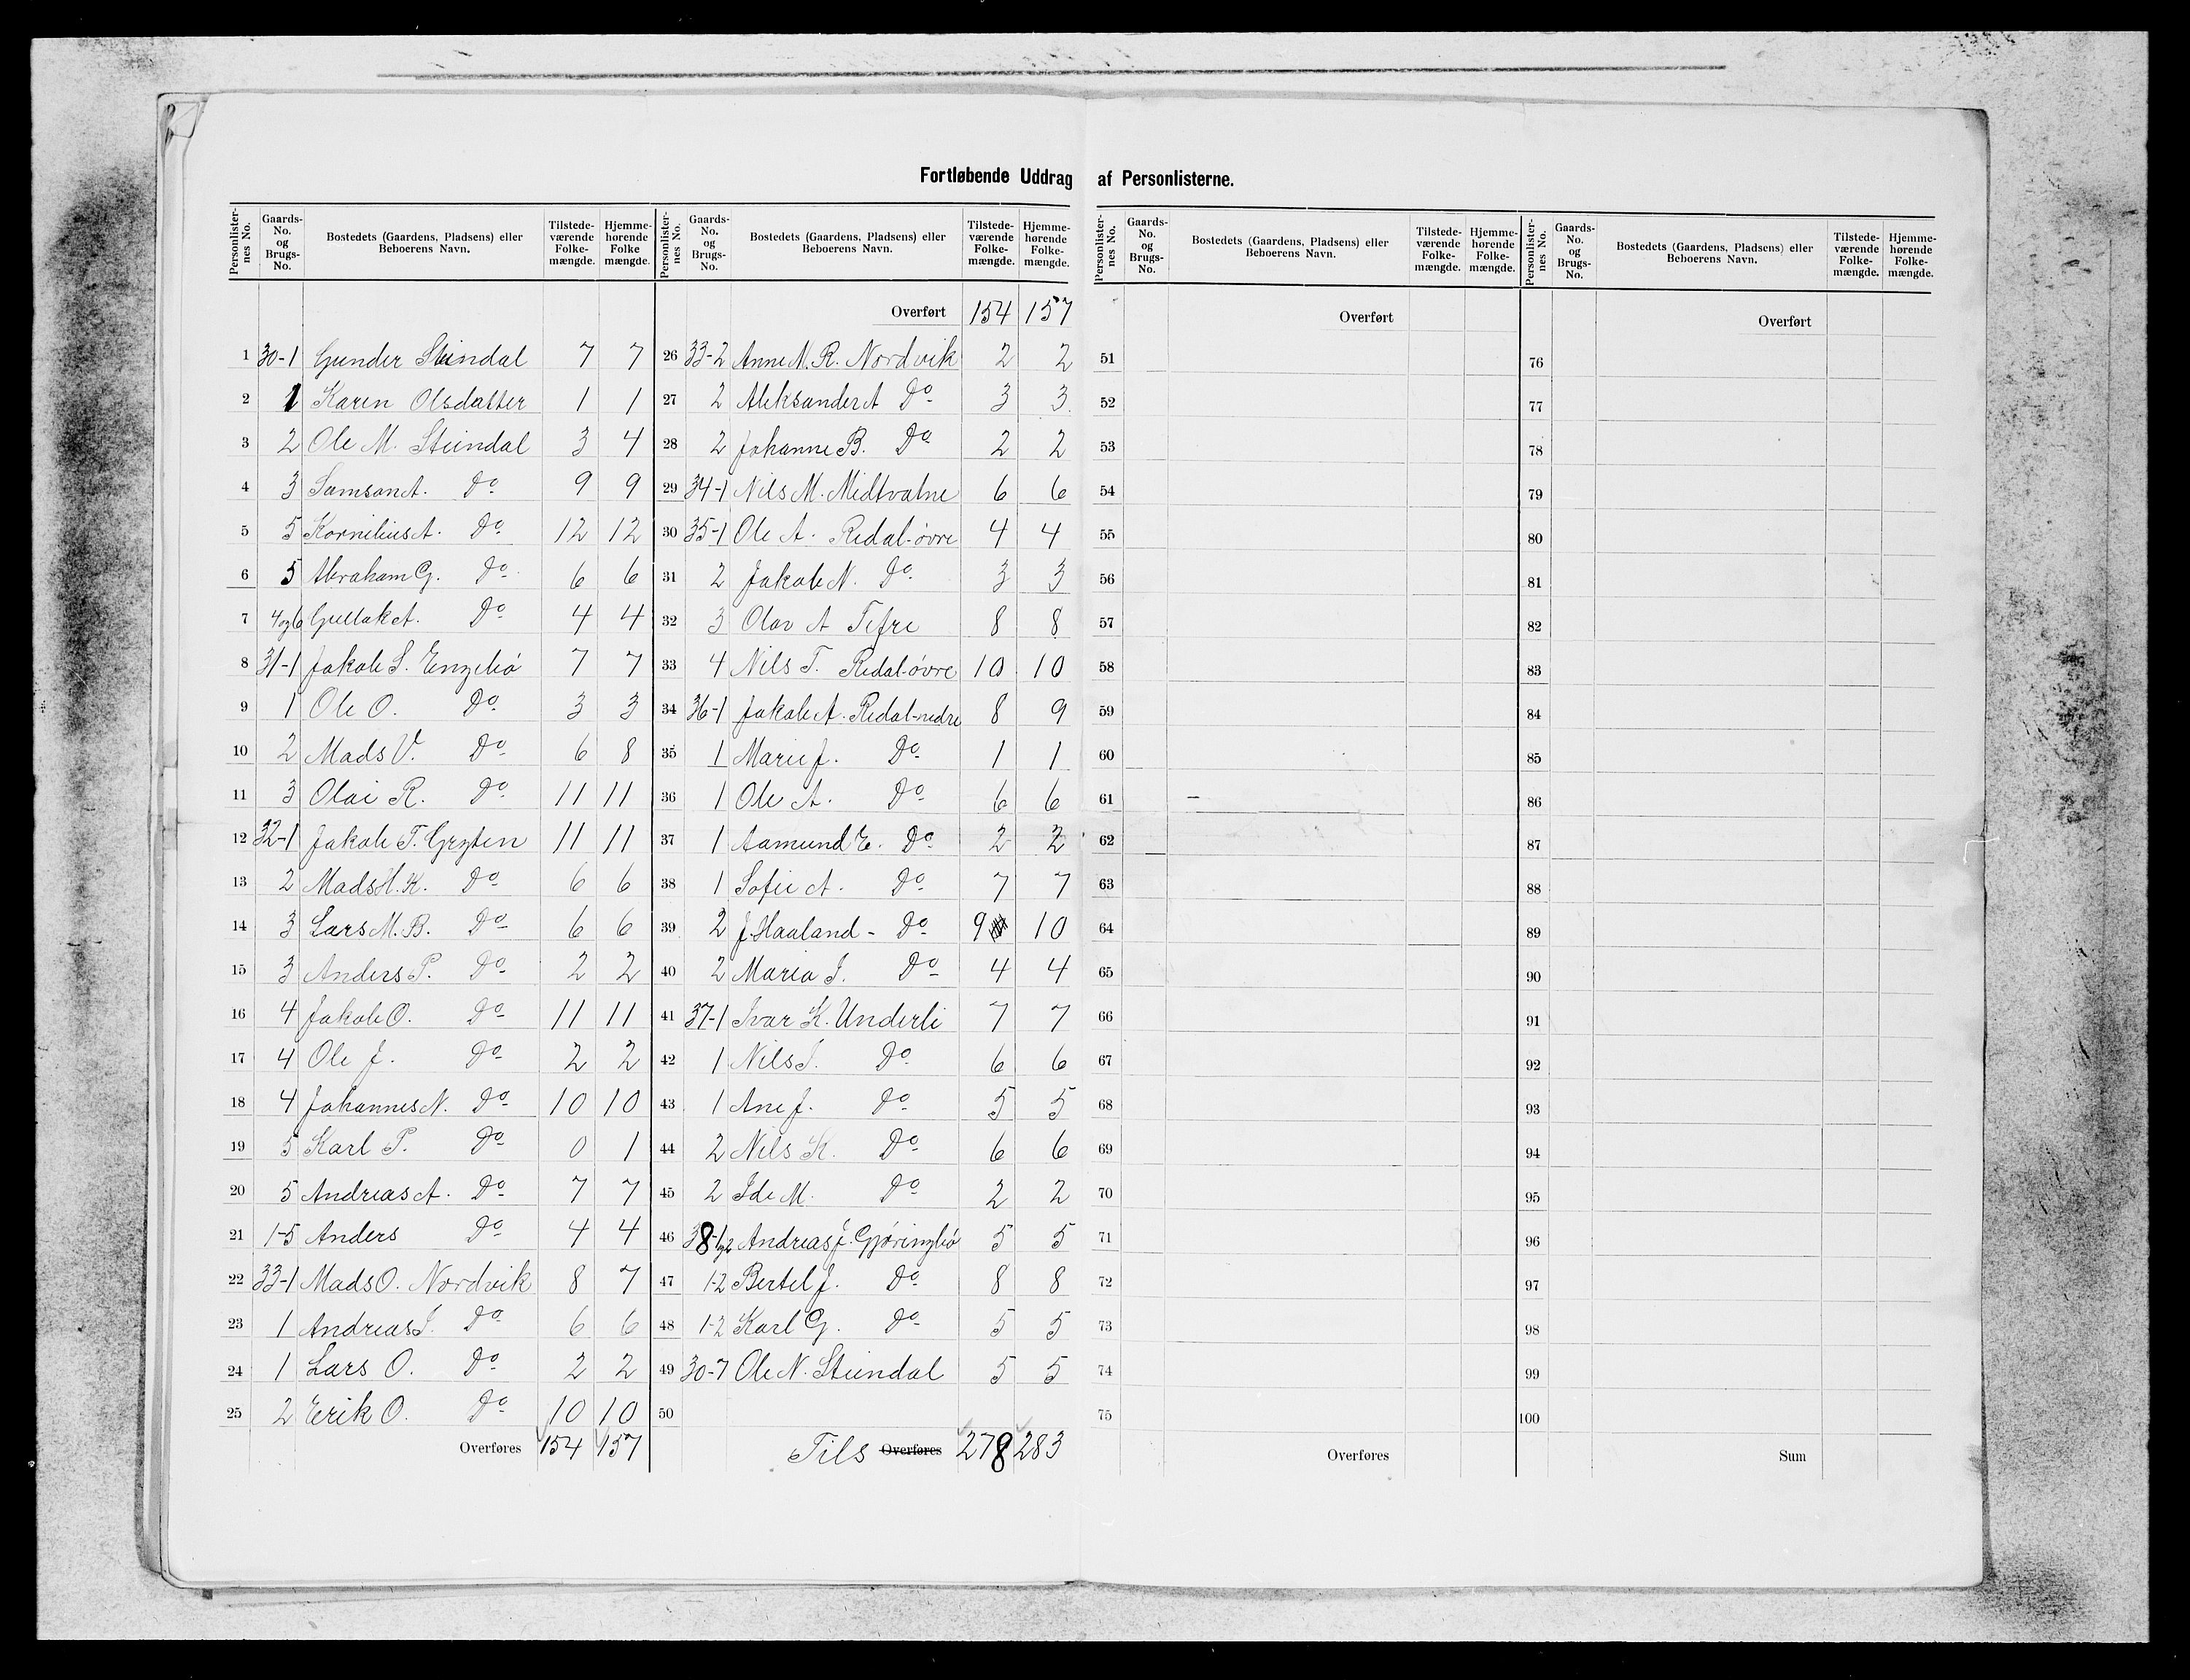 Fortløbende Uddrag af Personlisterne.
Personlister-nes No. Gaards-No. og Brugs-No. Bostedets (Gaardens, Pladsens) eller Beboerens Navn. Tilstede-værende Folke-mængde. Hjemme-hørende Folke mængde.
1 30-1 Gunder Steindal 7 7
2 1 Karen Olsdatter 1 1
3 2 Ole M. Steindal 3 4
4 3 Samson A. Do 9 9
5 5 Kornelius A. Do 12 12
6 5 Abraham G. Do 6 6
7 4og6 Gullak A. Do 4 4
8 31-1 Jakob S. Engebø 7 7
9 1 Ole O. Do 3 3
10 2 Mads V. Do 6 8
11 3 Olai R. Do 11 11
12 32-1 Jakob T. Gryten 11 11
13 2 Mads H. K. Do 6 6
14 3 Lars M. B. Do 6 6
15 3 Anders P. Do 2 2
16 4 Jakob O. Do 11 11
17 4 Ole J. Do 2 2
18 4 Johannes N. Do 10 10
19 5 Karl P. Do 0 1
20 5 Andreas A. Do 7 7
21 1-5 Anders Do 4 4
22 33-1 Mads O. Nordvik 8 7
23 1 Andreas J. Do 6 6
24 1 Lars O. Do 2 2
25 2 Erik O. Do 10 10
Overføres 154 157
Personlister-nes No. Gaards-No. og Brugs-No. Bostedets (Gaardens, Pladsens) eller Beboerens Navn. Tilstede-værende Folke-mængde. Hjemme-hørende Folke-mængde.
Overført 154 157
26 33-2 Anne M. R. Nordvik 2 2
27 2 Aleksander A Do 3 3
28 2 Johanne B. Do 2 2
29 34-1 Nils M. Midtvatne 6 6
30 35-1 Ole A. Redal-øvre 4 4
31 2 Jakob N. Do 3 3
32 3 Olav A Tefre 8 8
33 4 Nils T. Redal-øvre 10 10
34 36-1 Jakob A. Redal-nedre 8 9
35 1 Marie J. Do 1 1
36 1 Ole A. Do 6 6
37 1 Aamund E. Do 2 2
38 1 Sofie A. Do 7 7
39 2 J. Haaland - Do 9 10
40 2 Maria J. Do 4 4
41 37-1 Ivar K. Underli 7 7
42 1 Nils J. Do 6 6
43 1 Ane J. Do 5 5
44 2 Nils K. Do 6 6
45 2 Ide M. Do 2 2
46 38-1og2 Andreas J. Gjøringbø 5 5
47 1-2 Bertel J. Do 8 8
48 1-2 Karl G. Do 5 5
49 30-7 Ole N. Steindal 5 5
50
Tils Overføres 278 283
Personlister-nes No. Gaards-No. og Brugs-No. Bostedets (Gaardens, Pladsens) eller Beboerens Navn. Tilstede-værende Folke-mængde. Hjemme-hørende Folke-mængde.
Overført
51
52
53
54
55
56
57
58
59
60
61
62
63
64
65
66
67
68
69
70
71
72
73
74
75
Overføres
Personlister-nes No. Gaards-No. og Brugs-No. Bostedets (Gaardens, Pladsens) eller Beboerens Navn. Tilstede-værende Folke-mængde. Hjemme-hørende Folke-mængde.
Overført
76
77
78
79
80
81
82
83
84
85
86
87
88
89
90
91
92
93
94
95
96
97
98
99
100
Sum